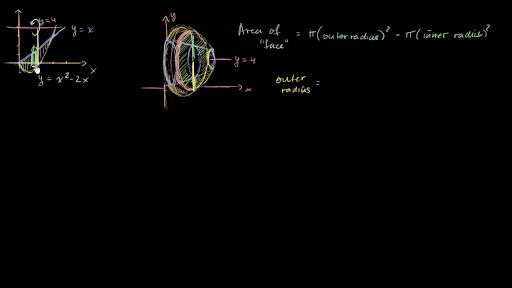 y=4
y=x
x
y = x²-2x
y
y=4
x
Area of "face" = π(outer radius)² - π(inner radius)²
outer radius =